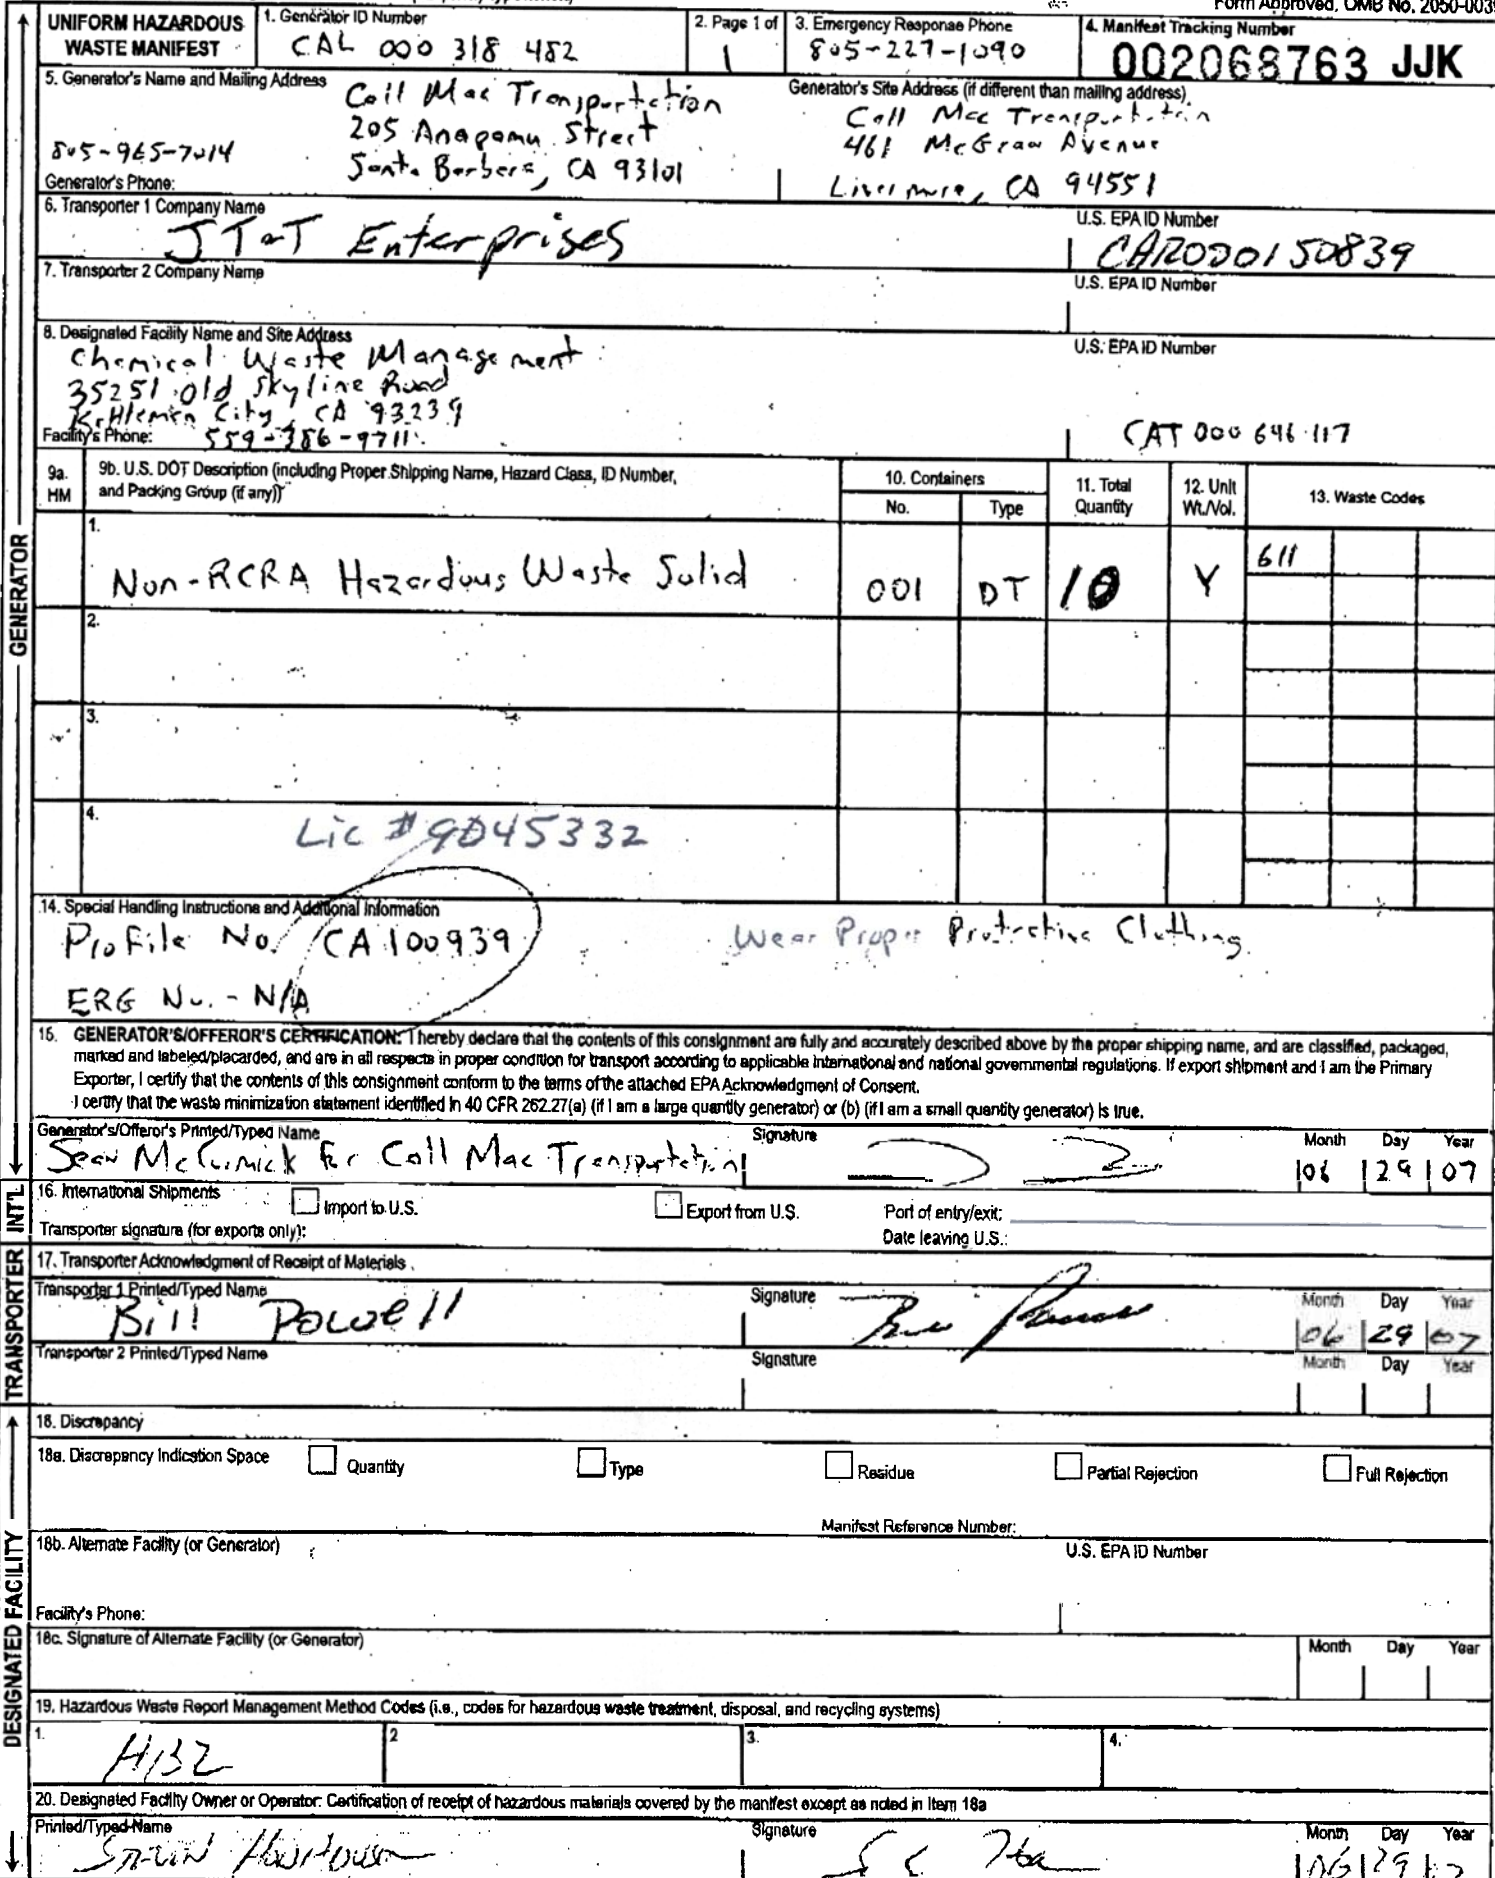 Form Approved, OMB No. 2050-003
UNIFORM HAZARDOUS WASTE MANIFEST
1. Generator ID Number
CAL 000 318 482
2. Page 1 of
1
3. Emergency Response Phone
805-227-1090
4. Manifest Tracking Number
002068763 JJK
5. Generator's Name and Mailing Address
Coll Mac Transportation
205 Anapamu Street
Santa Barbara, CA 93101
805-965-7014
Generator's Phone:
Generator's Site Address (if different than mailing address)
Coll Mac Transportation
461 McGraw Avenue
Livermore, CA 94551
6. Transporter 1 Company Name
JT&T Enterprises
U.S. EPA ID Number
CAR000150839
7. Transporter 2 Company Name
U.S. EPA ID Number
8. Designated Facility Name and Site Address
Chemical Waste Management
35251 Old Skyline Road
Kettleman City, CA 93239
Facility's Phone: 559-386-9711
U.S. EPA ID Number
CAT 000 646 117
9a. HM
9b. U.S. DOT Description (including Proper Shipping Name, Hazard Class, ID Number, and Packing Group (if any))
10. Containers
No.
Type
11. Total Quantity
12. Unit Wt./Vol.
13. Waste Codes
1.
Non-RCRA Hazardous Waste Solid
001
DT
10
Y
611
2.
3.
4.
Lic # 9D45332
14. Special Handling Instructions and Additional Information
Profile No. CA100939
Wear Proper Protective Clothing
ERG No. - N/A
15. GENERATOR'S/OFFEROR'S CERTIFICATION: I hereby declare that the contents of this consignment are fully and accurately described above by the proper shipping name, and are classified, packaged,
marked and labeled/placarded, and are in all respects in proper condition for transport according to applicable international and national governmental regulations. If export shipment and I am the Primary
Exporter, I certify that the contents of this consignment conform to the terms of the attached EPA Acknowledgment of Consent.
I certify that the waste minimization statement identified in 40 CFR 262.27(a) (if I am a large quantity generator) or (b) (if I am a small quantity generator) is true.
Generator's/Offeror's Printed/Typed Name
Sean McCormick for Coll Mac Transportation
Signature
Month Day Year
06 29 07
16. International Shipments
Import to U.S.
Export from U.S.
Port of entry/exit:
Transporter signature (for exports only):
Date leaving U.S.:
17. Transporter Acknowledgment of Receipt of Materials
Transporter 1 Printed/Typed Name
Bill Powell
Signature
Month Day Year
06 29 07
Transporter 2 Printed/Typed Name
Signature
Month Day Year
18. Discrepancy
18a. Discrepancy Indication Space
Quantity
Type
Residue
Partial Rejection
Full Rejection
Manifest Reference Number:
18b. Alternate Facility (or Generator)
U.S. EPA ID Number
Facility's Phone:
18c. Signature of Alternate Facility (or Generator)
Month Day Year
19. Hazardous Waste Report Management Method Codes (i.e., codes for hazardous waste treatment, disposal, and recycling systems)
1.
H132
2
3.
4.
20. Designated Facility Owner or Operator: Certification of receipt of hazardous materials covered by the manifest except as noted in Item 18a
Printed/Typed Name
Signature
Month Day Year
06 29
GENERATOR
INT'L
TRANSPORTER
DESIGNATED FACILITY